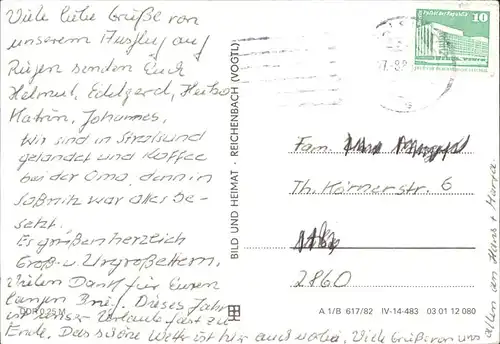 Viele liebe Grüße von
unserem Ausflug auf
Rügen senden Euch
Helmut, Edelgard, Heiko
Katrin, Johannes,
Wir sind in Stralsund
gelandet und Kaffee
bei der Oma, denn in
Saßnitz war alles be-
setzt.
Es grüßen herzlich
Groß- u Urgroßeltern.
Vielen Dank für Euren
langen Brief. Dieses Jahr
ist unser Urlaub fast zu
Ende. Das schöne Wetter ist hier auch vorbei. Viele Grüße von uns
allen an Hans
DDR 0,25 M
BILD UND HEIMAT · REICHENBACH (VOGTL)
10
Fam.
Th. Körnerstr. 6
2860
A 1/B 617/82 IV-14-483 03 01 12 080